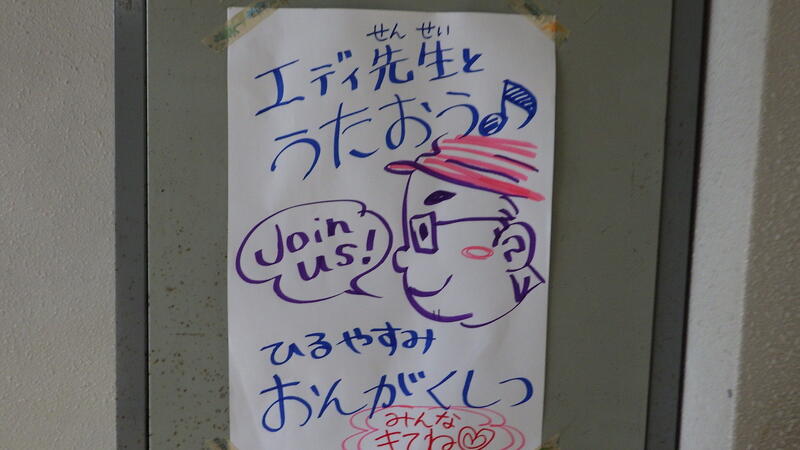 せん せい
エディ先生と
うたおう♪
Join
us!
ひるやすみ
おんがくしつ
みんな
きてね♡